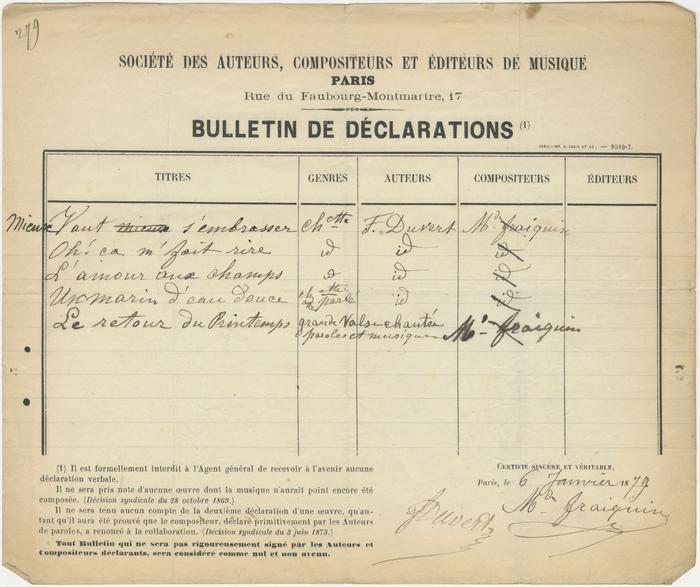 279
SOCIÉTÉ DES AUTEURS, COMPOSITEURS ET ÉDITEURS DE MUSIQUE
PARIS
Rue du Faubourg-Montmartre, 17
BULLETIN DE DÉCLARATIONS (1)
PARIS.-IMP. A. CHAIX ET CIE, — 9540-7.
TITRES GENRES AUTEURS COMPOSITEURS ÉDITEURS
Mieux Vaut mieux s'embrasser chtte F. Duvert Md fraiquin
Oh! ça m'fait rire id id id
L'amour aux champs id id id
Un marin d'eau douce chtte parlé id id
Le retour du Printemps grande Valse chantée Md fraiquin
paroles et musique
(1) Il est formellement interdit à l'Agent général de recevoir à l'avenir aucune
déclaration verbale.
Il ne sera pris note d'aucune œuvre dont la musique n'aurait point encore été
composée. (Décision syndicale du 28 octobre 1869.)
Il ne sera tenu aucun compte de la deuxième déclaration d'une œuvre, qu'au-
tant qu'il aura été prouvé que le compositeur, déclaré primitivement par les Auteurs
de paroles, a renoncé à la collaboration. (Décision syndicale du 3 juin 1873.)
Tout Bulletin qui ne sera pas rigoureusement signé par les Auteurs et
Compositeurs déclarants, sera considéré comme nul et non avenu.
CERTIFIÉ SINCÈRE ET VÉRITABLE,
Paris, le 6 Janvier 1879
FDuvert
Md fraiquin